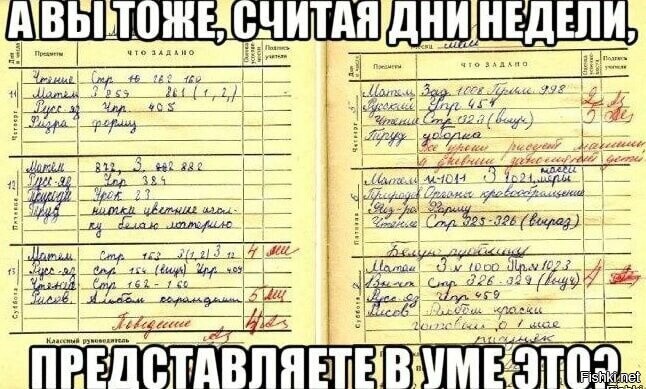 А ВЫ ТОЖЕ, СЧИТАЯ ДНИ НЕДЕЛИ,
Предметы ЧТО ЗАДАНО Подпись учителя
11 Четверг
Чтение Стр 160
Матем 3 859 861 (1, 2,)
Русс-яз Упр. 405
Физра форму
12 Пятница
Матем 872, 3. 882
Русс-яз Упр 384
Урок 23
Труд нитки цветные игол-
ку белую материю
13 Суббота
Матем Стр 163 3(1,2) 3 4
Русс-яз стр 154 (выуч) Упр 409
Чтение Стр 162-160
Рисов. Альбом карандаши 5
Поведение
Классный руководитель
Месяц май
Предметы ЧТО ЗАДАНО Подпись учителя
Четверг
Матем Зад 1006 Прим. 998 2
Русский Упр 454 5
Чтение Стр 323 (выуч)
Труд уборка
Все уроки рисует машины,
а дневник заполняют дети
6 Пятница
Матем №1011 3 1021, меры массы
Природ Органы кровообращения
Физ-ра Форму
Чтение Стр 325-326 (выраз)
Белую рубашку
Суббота
Матем 3 № 1000 Пр № 1023 4
Стр 326-329 (выуч)
Русс-яз Упр 459
Рисов Альбом краски
готовый о 1 мае
рисунок
ПРЕДСТАВЛЯЕТЕ В УМЕ ЭТО?
Fishki.net